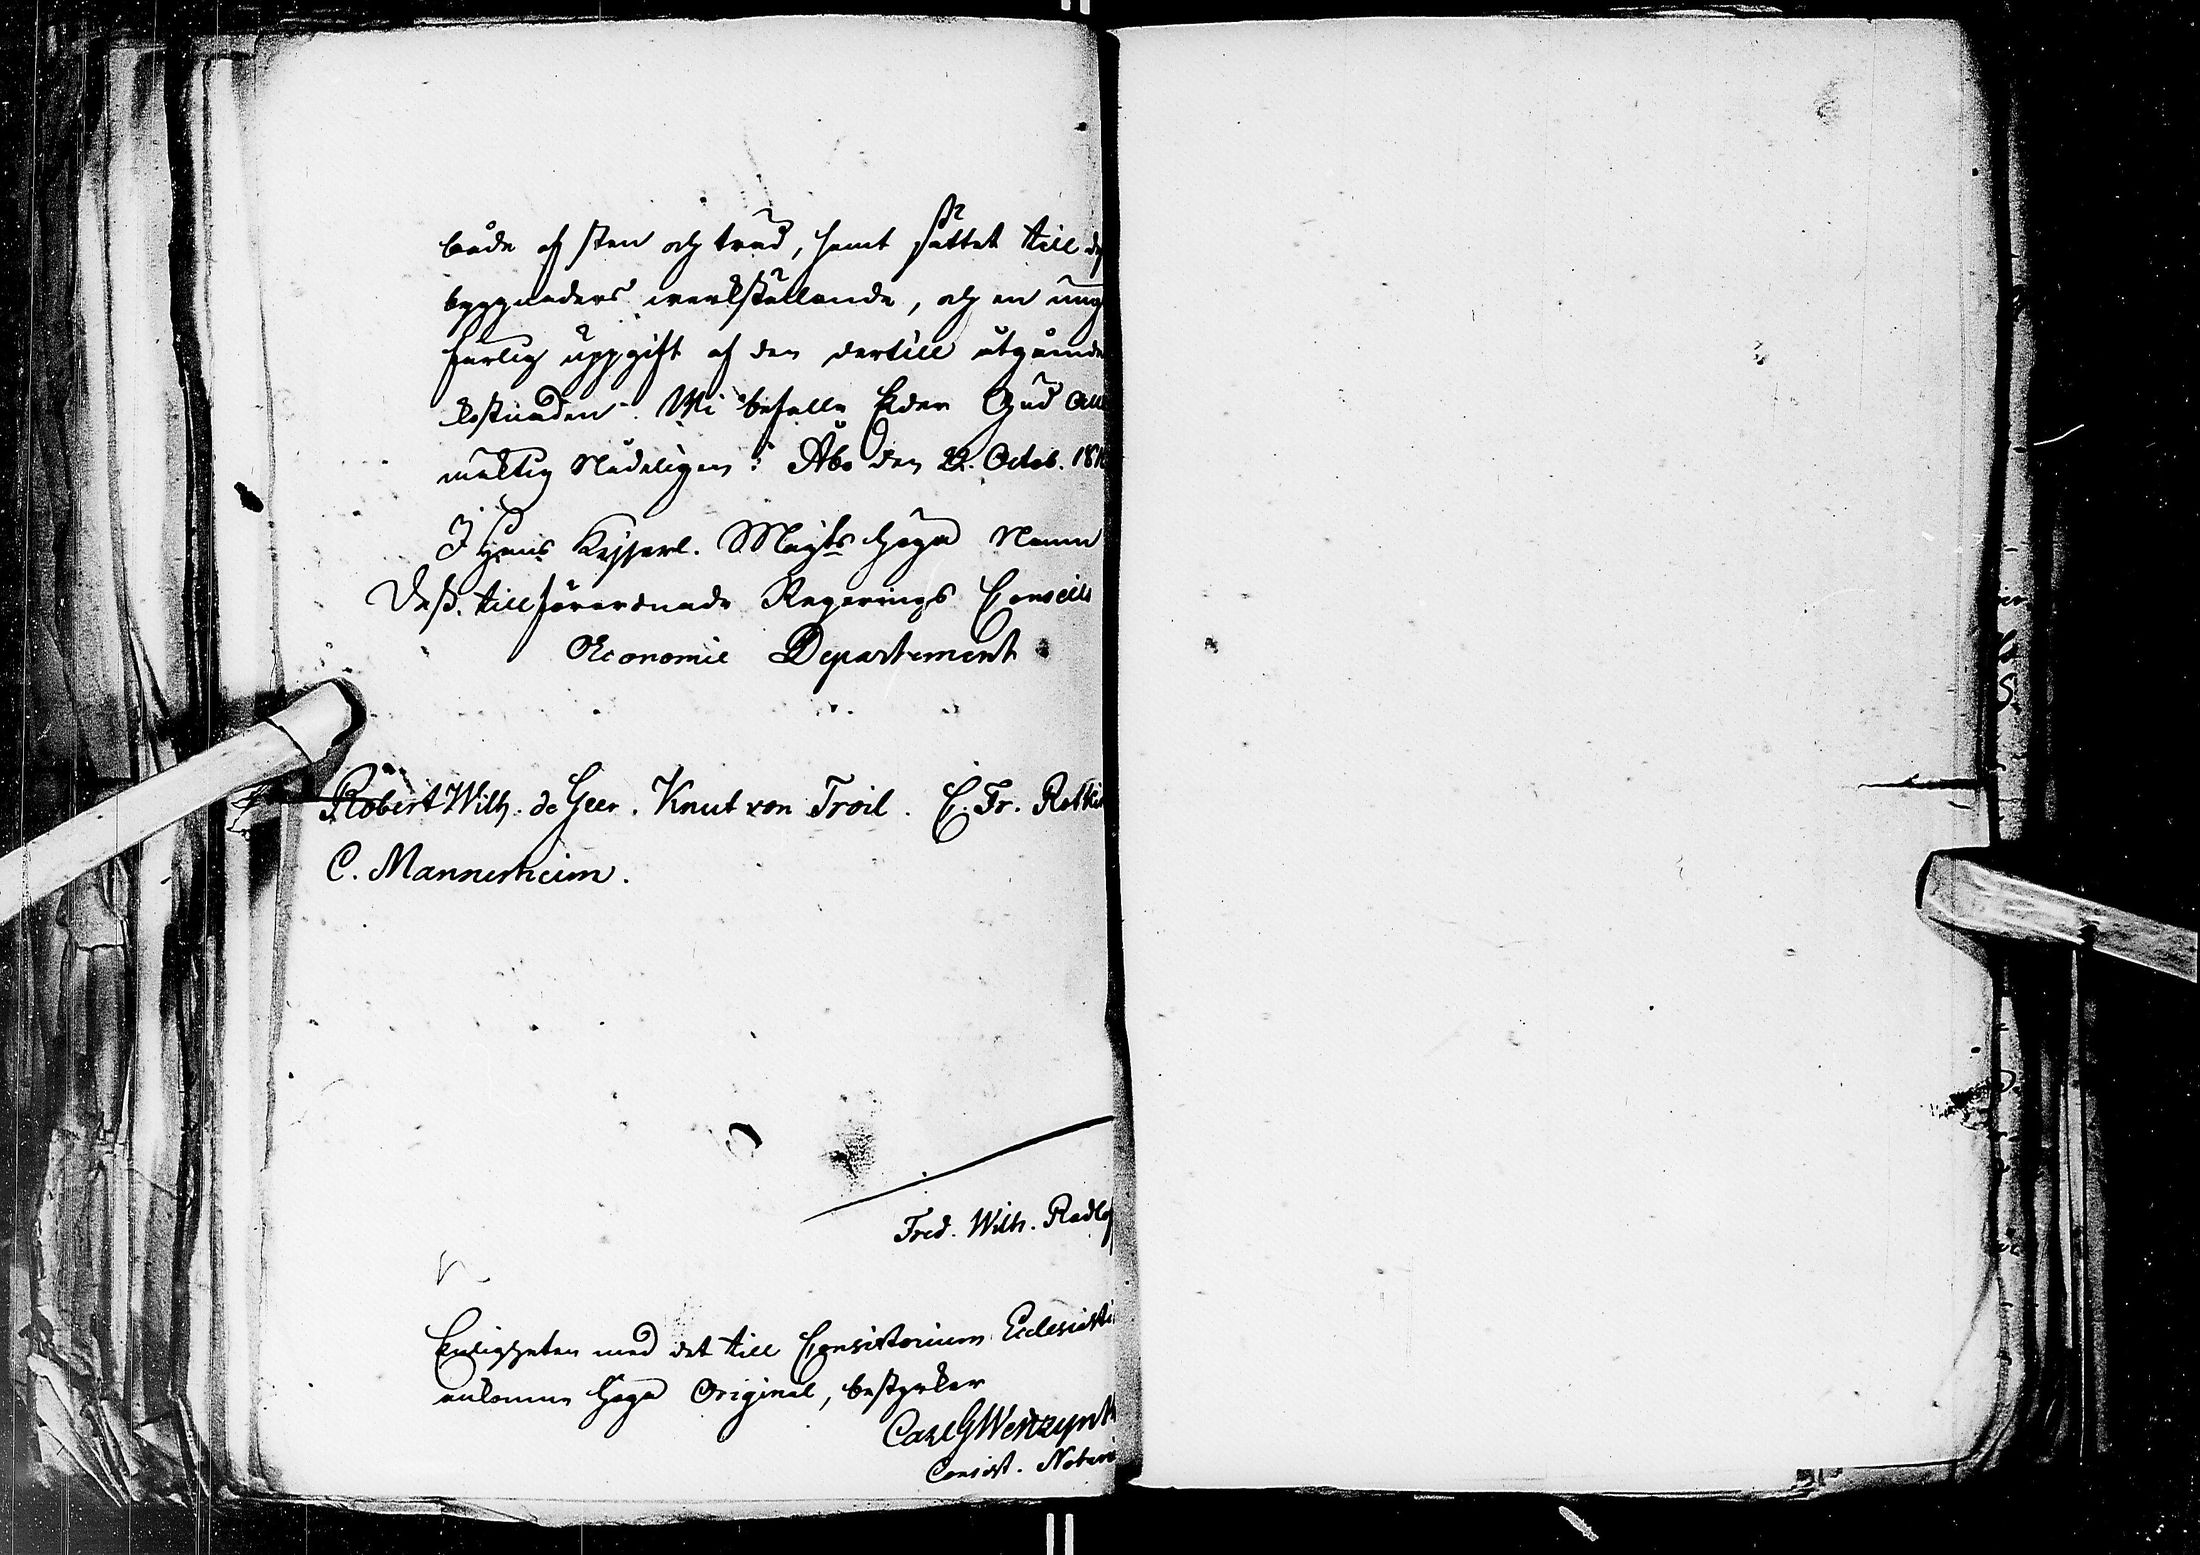 både af sten och träd, samt sättet till de
byggnaders werkställande, och en unge
färlig uppgift af den dertill åtgående
kostnaden. Wi befalle Eder Gud All
mäktig Nådeligen: Åbo den 22. Octob. 181
I Hans Kejserl. Majts höga Namn
Dess tillförordnade Regerings Conseils
Oeconomie Departement
Robert Wilh. de Geer. Knut von Troil. E. Fr. Rotki
C. Mannerheim.
Fred. Wilh. Radlof
Enligheten med det till Consistorium Ecclesiasti
ankomne höga Original, bestyrker
Carl G
Consist. Notari